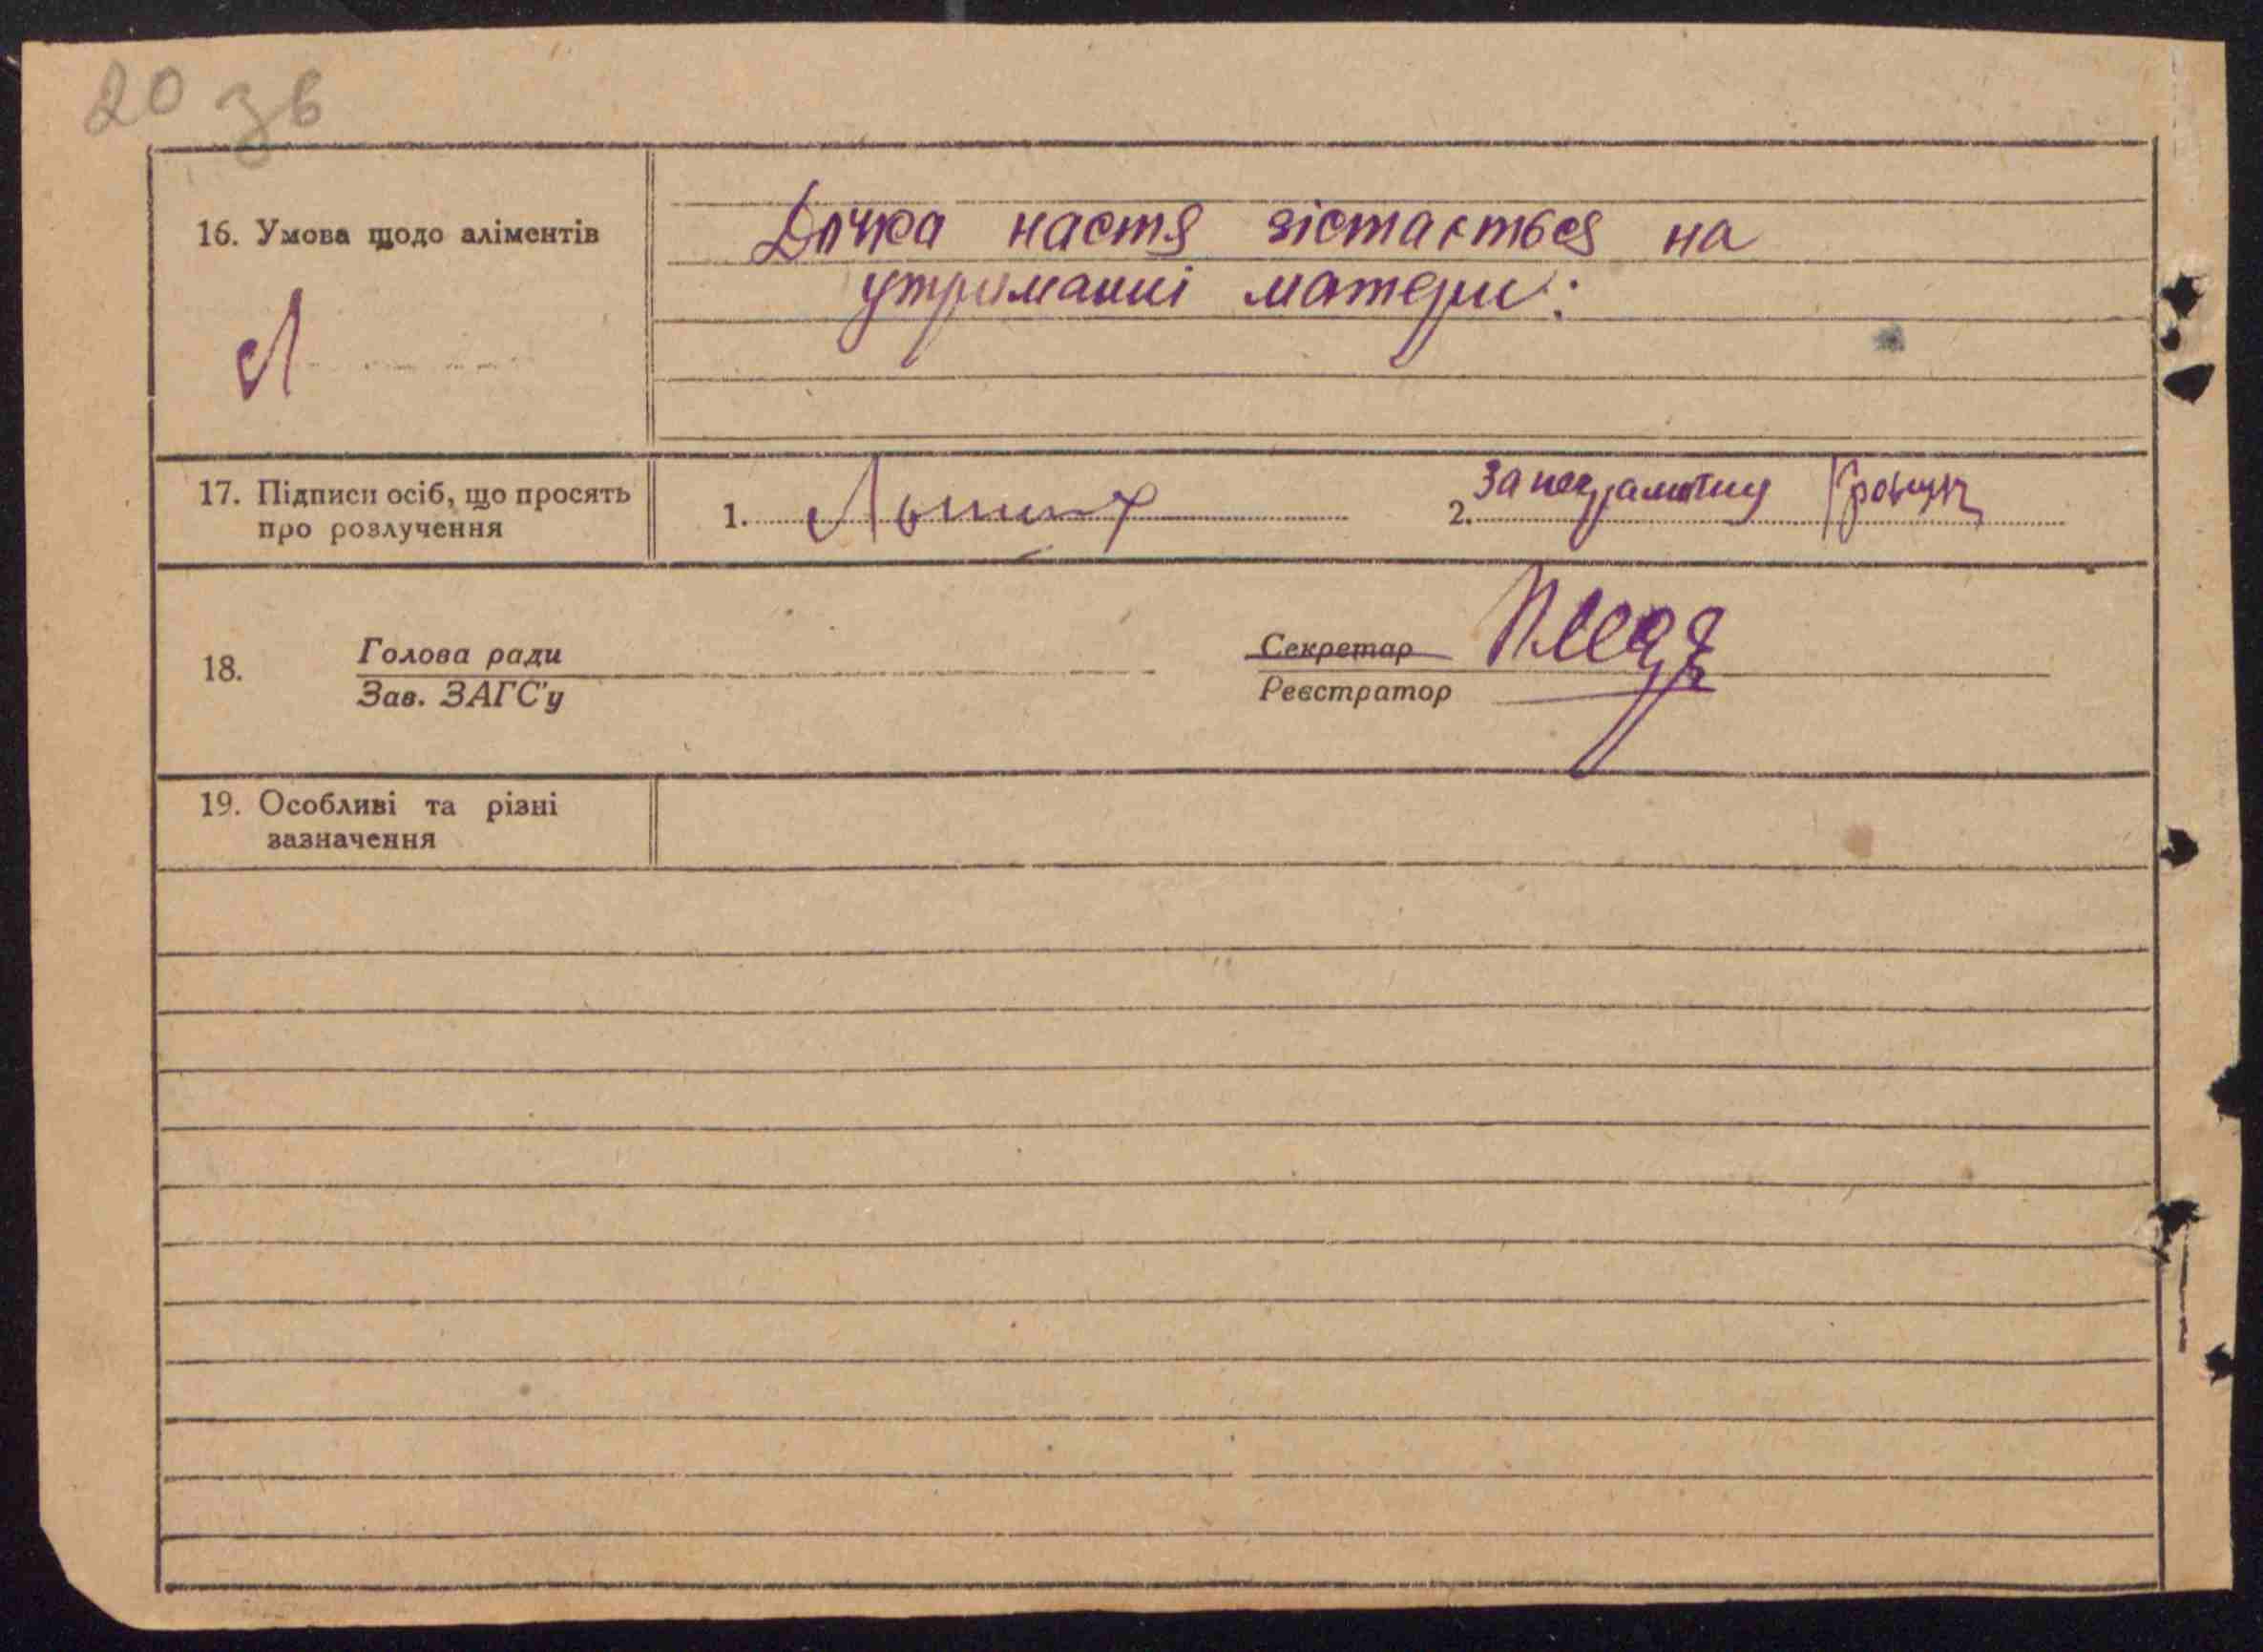 20 зв
16. Умова щодо аліментів
Дочка настя зістається на
утриманні матери:
17. Підписи осіб, що просять
про розлучення
1.
2. За неграмотну
18.
Голова ради
Зав. ЗАГС'у
Секретар
Реєстратор
19. Особливі та різні
зазначення